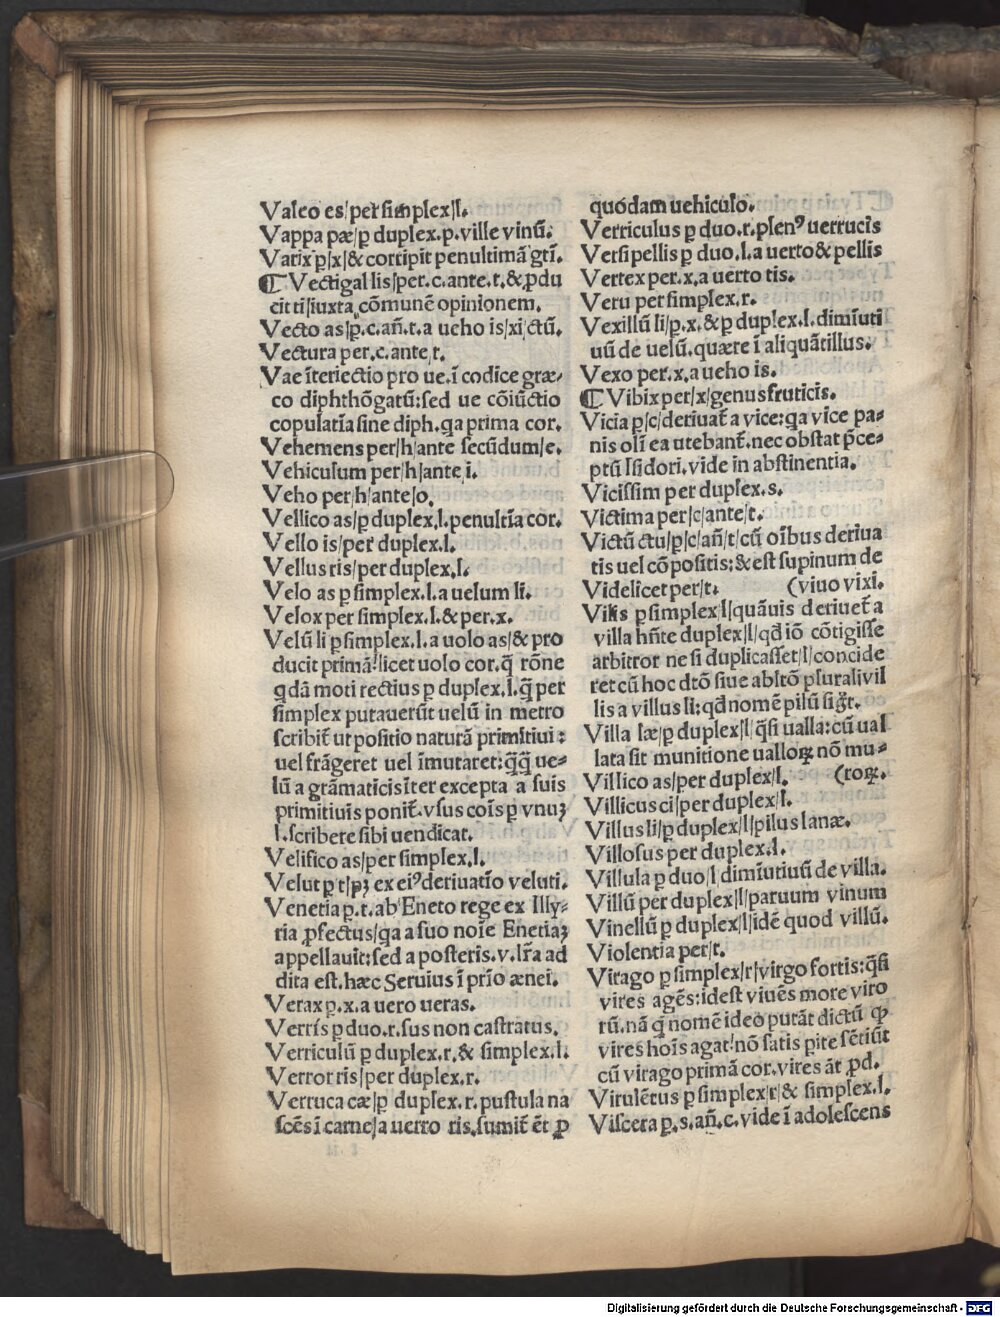 Valeo es/per simplex/l.
Vappa pæ/ꝑ duplex.p.ville vinū.
Varix ꝑ/x/&corripit penultimā gtī.
¶ Vectigal lis/per.c.ante.t.&ꝓdu
cit ti/iuxta cōmunē opinionem.
Vecto as/ꝑ.c.añ.t.a ueho is/xi/ctū.
Vectura per.c.ante.t.
Vae īteriectio pro ue.ī codice græ-
co diphthōgatū:sed ue cōiūctio
copulatīa sine diph.qa prima cor.
Vehemens per/h/ante secūdum/e.
Vehiculum per/h/ante i.
Veho per/h/ante/o.
Vellico as/ꝑ duplex.l.penultīa cor.
Vello is/per duplex.l.
Vellus ris/per duplex.l.
Velo as ꝑ simplex.l.a uelum li.
Velox per simplex.l.&per.x.
Velū li ꝑ simplex.l.a uolo as/& pro
ducit primā/licet uolo cor.q̄ rōne
qdā moti rectius ꝑ duplex.l.q̄ per
simplex putauerūt uelū in metro
scribit̄ ut positio naturā primitiui:
uel frāgeret uel īmutaret:q̄q̄ ue-
lū a grāmaticis īter excepta a suis
primitiuis ponit̄.vsus coīs ꝑ vnuꝫ
l.scribere sibi uendicat.
Velifico as/per simplex.l.
Velut ꝑ t/pꝫ ex eiꝰderiuatīo veluti.
Venetia ꝑ.t.ab Eneto rege ex Illy-
ria ꝓfectus/qa a suo noīe Enetiaꝫ
appellauit:sed a posteris.v.lr̄a ad
dita est.hæc Seruius ī prīo ænei.
Verax ꝑ.x.a uero ueras.
Verris ꝑ duo.r.sus non castratus.
Verriculū ꝑ duplex.r.& simplex.l.
Verror ris/per duplex.r.
Verruca cæ/ꝑ duplex.r.pustula na
scēs ī carne/a uerro ris.sumit̄ ēt ꝓ
quodam uehiculo.
Verriculus ꝑ duo.r.plenꝰ uerrucis
Versipellis ꝑ duo.l.a uerto& pellis
Vertex per.x.a uerto tis.
Veru per simplex.r.
Vexillū li/ꝑ.x.&ꝑ duplex.l.dimīuti
uū de uelū.quære ī aliquātillus.
Vexo per.x.a ueho is.
¶ Vibix per/x/genus fruticis.
Vicia ꝑ/c/deriuat̄ a vice:qa vice pa-
nis olī ea utebant̄.nec obstat p̄ce-
ptū Isidori.vide in abstinentia.
Vicissim per duplex.s.
Victima per/c/ante/t.
Victū ctu/ꝑ/c/añ/t/cū oībus deriua
tis uel cōpositis:&est supinum de
Videlicet per/t. (viuo vixi.
Vilis ꝑ simplex/l/quāuis deriuet̄ a
villa hñte duplex/l/qd̄ iō cōtigisse
arbitror ne si duplicasset/l/concide
ret cū hoc dtō siue abltō pluraliuil
lis a villus li:qd̄ nomē pilū sigt̄.
Villa læ/ꝑ duplex/l/q̄si ualla:cū ual
lata sit munitione ualloꝝ nō mu-
Villico as/per duplex/l. (roꝝ.
Villicus ci/per duplex/l.
Villus li/ꝑ duplex/l/pilus lanæ.
Villosus per duplex.l.
Villula ꝑ duo/l/dimīutiuū de villa.
Villū per duplex/l/paruum vinum
Vinellū ꝑ duplex/l/idē quod villū.
Violentia per/t.
Virago ꝑ simplex/r/virgo fortis:q̄si
vires agēs:idest viuēs more viro
rū.nā q̄ nomē ideo putāt dictū ꝙ
vires hoīs agat/nō satis ꝑite sētiūt
cū virago primā cor.vires āt ꝓd.
Virulētus ꝑ simplex/r/& simplex.l.
Viscera ꝑ.s.añ.c.vide ī adolescens
Digitalisierung gefördert durch die Deutsche Forschungsgemeinschaft - DFG